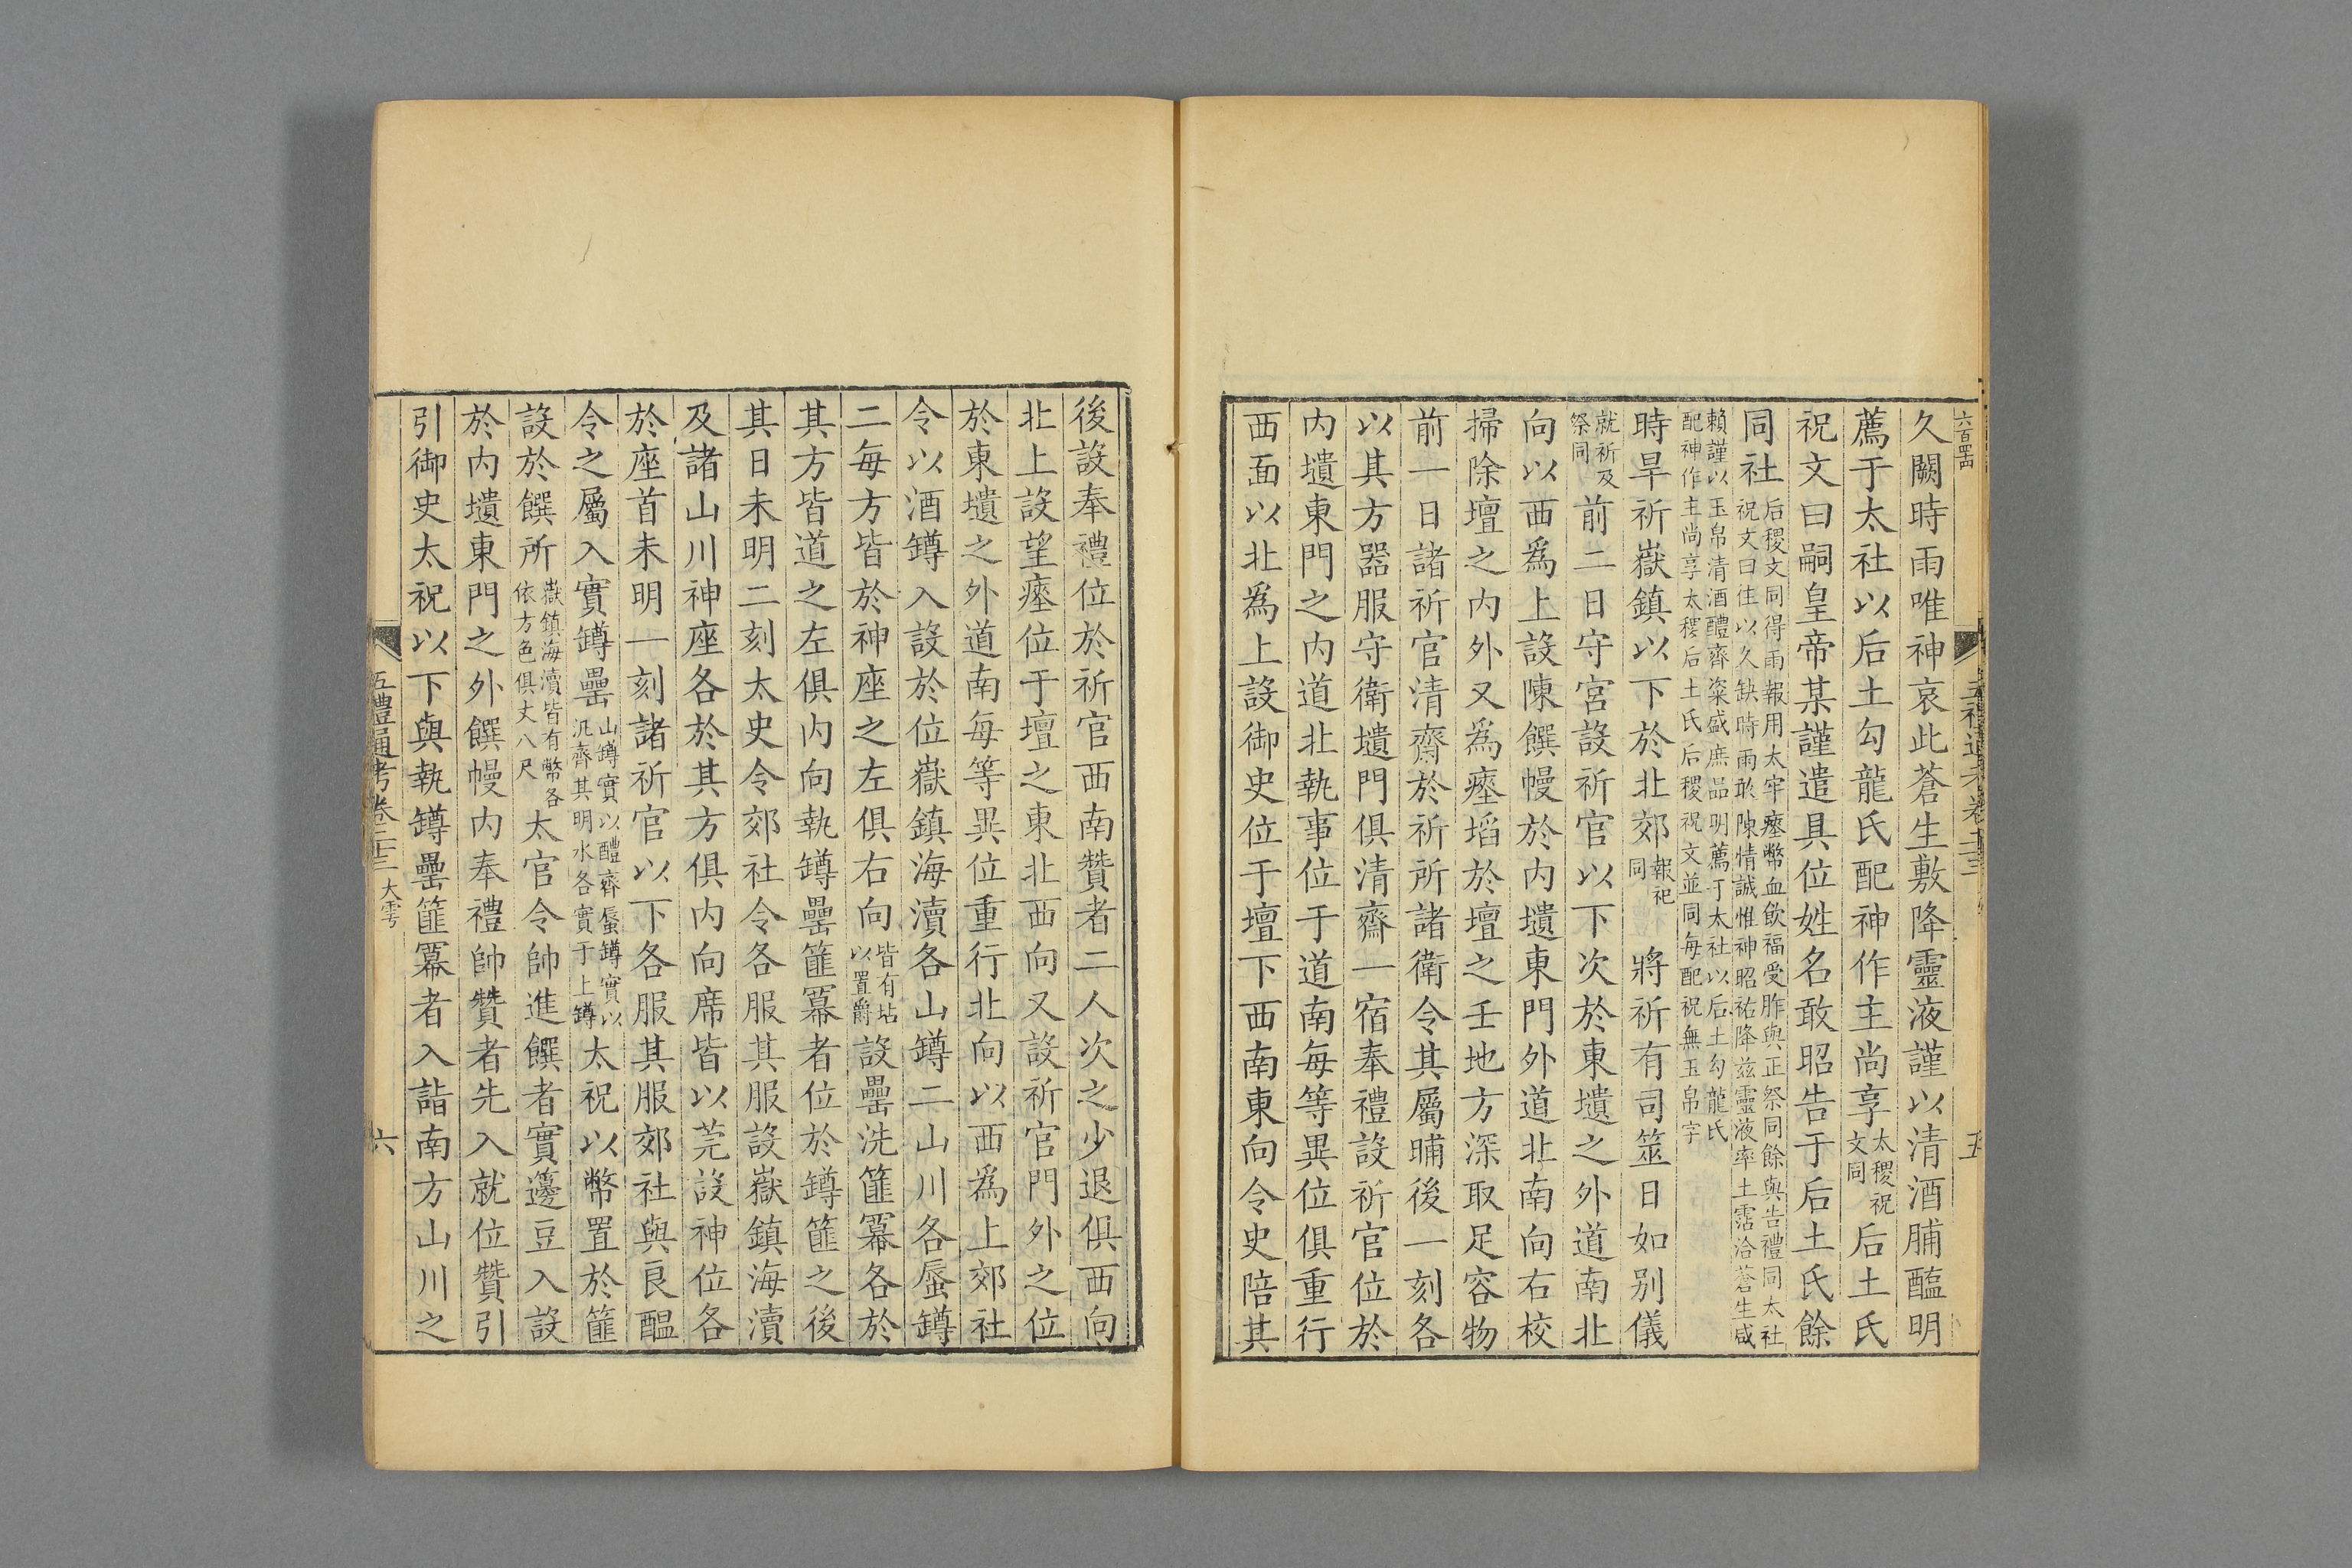 久闕時雨唯神哀此蒼生敷降靈液謹以清酒脯醢明
薦于太社以后土勾龍氏配神作主尚享太稷祝文同后土氏
祝文曰嗣皇帝某謹遣具位姓名敢昭告于后土氏餘
同社后稷文同得雨報用太牢瘞幣血飲福受胙與正祭同餘與告禮同太社祝文曰往以久缺時雨敢陳情誠惟神昭祐降茲靈液率土霑洽蒼生咸
賴謹以玉帛清酒醴齊粢盛庶品明薦于太社以后土勾龍氏配神作主尚享太稷后土氏后稷祝文並同每配祝無玉帛字
時旱祈嶽鎮以下於北郊報祀同 將祈有司筮日如別儀
就祈及祭同前二日守宮設祈官以下次於東壝之外道南北
向以西爲上設陳饌幔於內壝東門外道北南向右校
掃除壇之內外又爲瘞埳於壇之壬地方深取足容物
前一日諸祈官清齋於祈所諸衛令其屬晡後一刻各
以其方器服守衛壝門俱清齋一宿奉禮設祈官位於
內壝東門之內道北執事位于道南每等異位俱重行
西面以北爲上設御史位于壇下西南東向令史陪其
後設奉禮位於祈官西南贊者二人次之少退俱西向
北上設望瘞位于壇之東北西向又設祈官門外之位
於東壝之外道南每等異位重行北向以西爲上郊社
令以酒罇入設於位嶽鎮海瀆各山罇二山川各蜃罇
二每方皆於神座之左俱右向皆有坫以置爵設罍洗篚冪各於
其方皆道之左俱內向執罇罍篚冪者位於罇篚之後
其日未明二刻太史令郊社令各服其服設嶽鎮海瀆
及諸山川神座各於其方俱內向席皆以莞設神位各
於座首未明一刻諸祈官以下各服其服郊社與良醞
令之屬入實罇罍山罇實以醴齊蜃罇實以汎齊其明水各實于上罇太祝以幣置於篚
設於饌所嶽鎮海瀆皆有幣各依方色俱丈八尺太官令帥進饌者實籩豆入設
於內壝東門之外饌幔內奉禮帥贊者先入就位贊引
引御史太祝以下與執罇罍篚冪者入詣南方山川之
五禮通考卷二十三 大雩
六